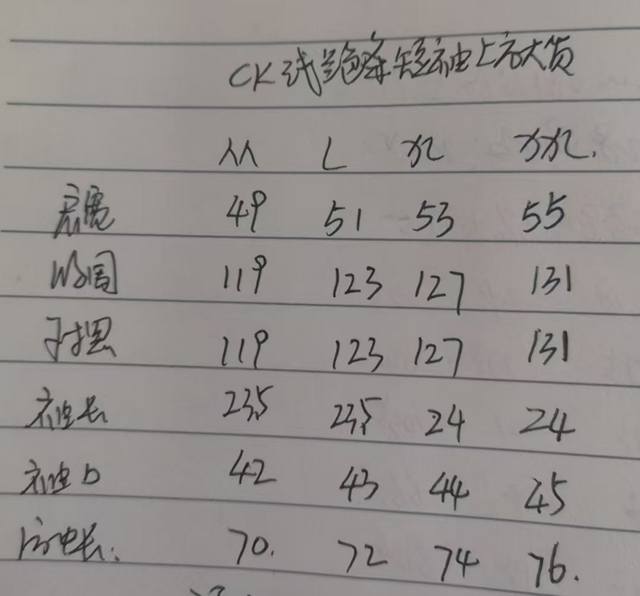 CK 条短袖上衣大货
M L XL XXL.
肩宽 49 51 53 55
胸围 119 123 127 131
下摆 119 123 127 131
袖长 23.5 23.5 24 24
袖口 42 43 44 45
后中长. 70. 72 74 76.